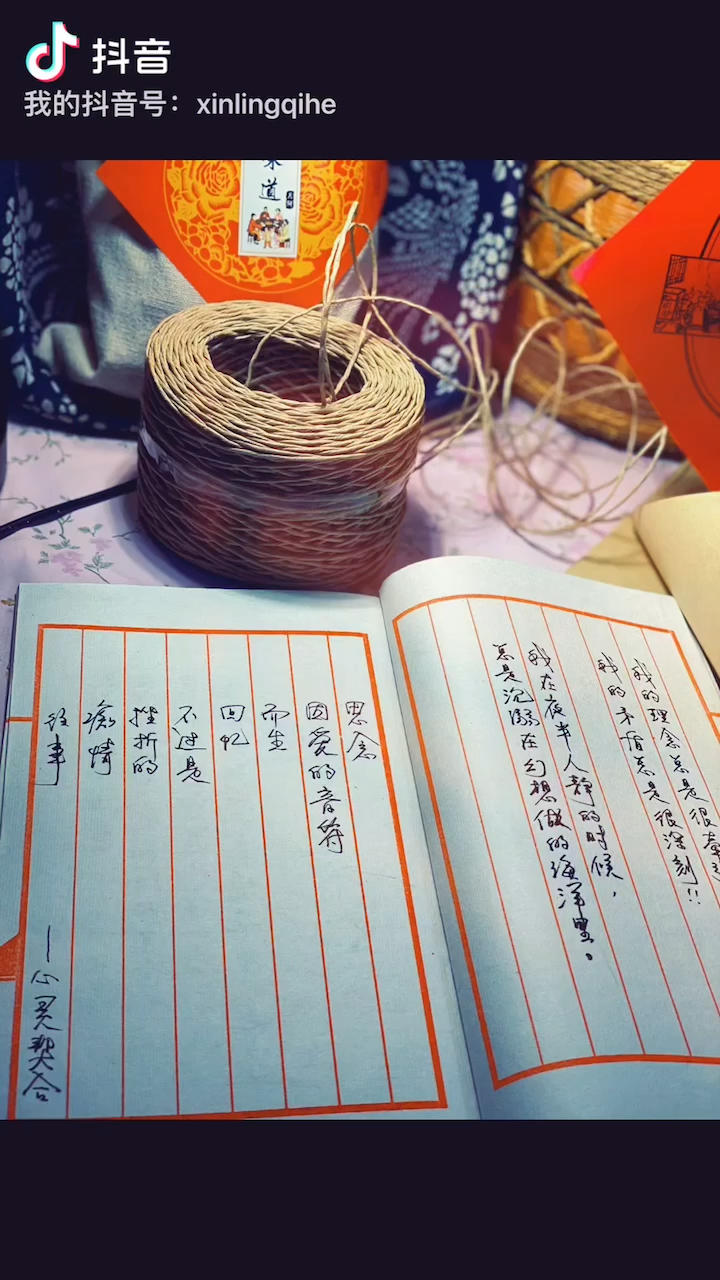 抖音
我的抖音号：xinlingqihe
道
我的理念总是很
我的矛盾总是很深刻!!
我在夜半人静的时候，
总是沉溺在幻想做的海洋里。
思念
因爱的音符
而生
回忆
不过是
挫折的
痴情
故事
—心灵契合